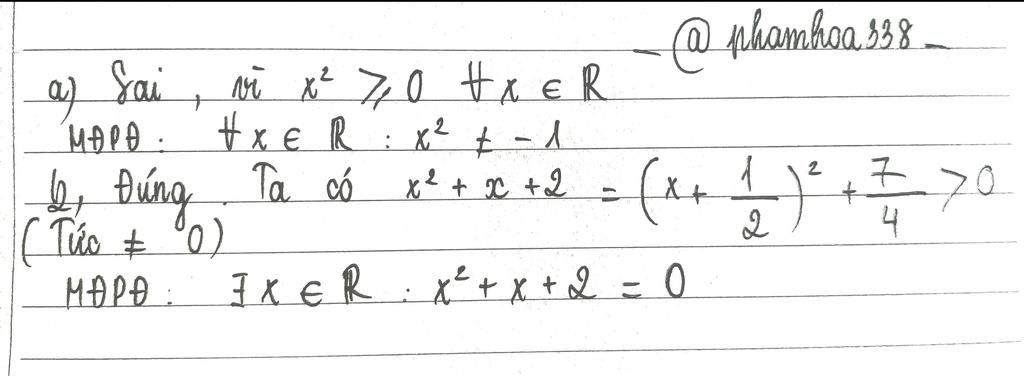 - @ phamhoa338 -
a) Sai, vì x² ⩾ 0 ∀x ∈ ℝ
MĐPĐ: ∀x ∈ ℝ : x² ≠ -1
b, Đúng. Ta có x² + x + 2 = (x + 1/2)² + 7/4 > 0
(Tức ≠ 0)
MĐPĐ: ∃x ∈ ℝ : x² + x + 2 = 0